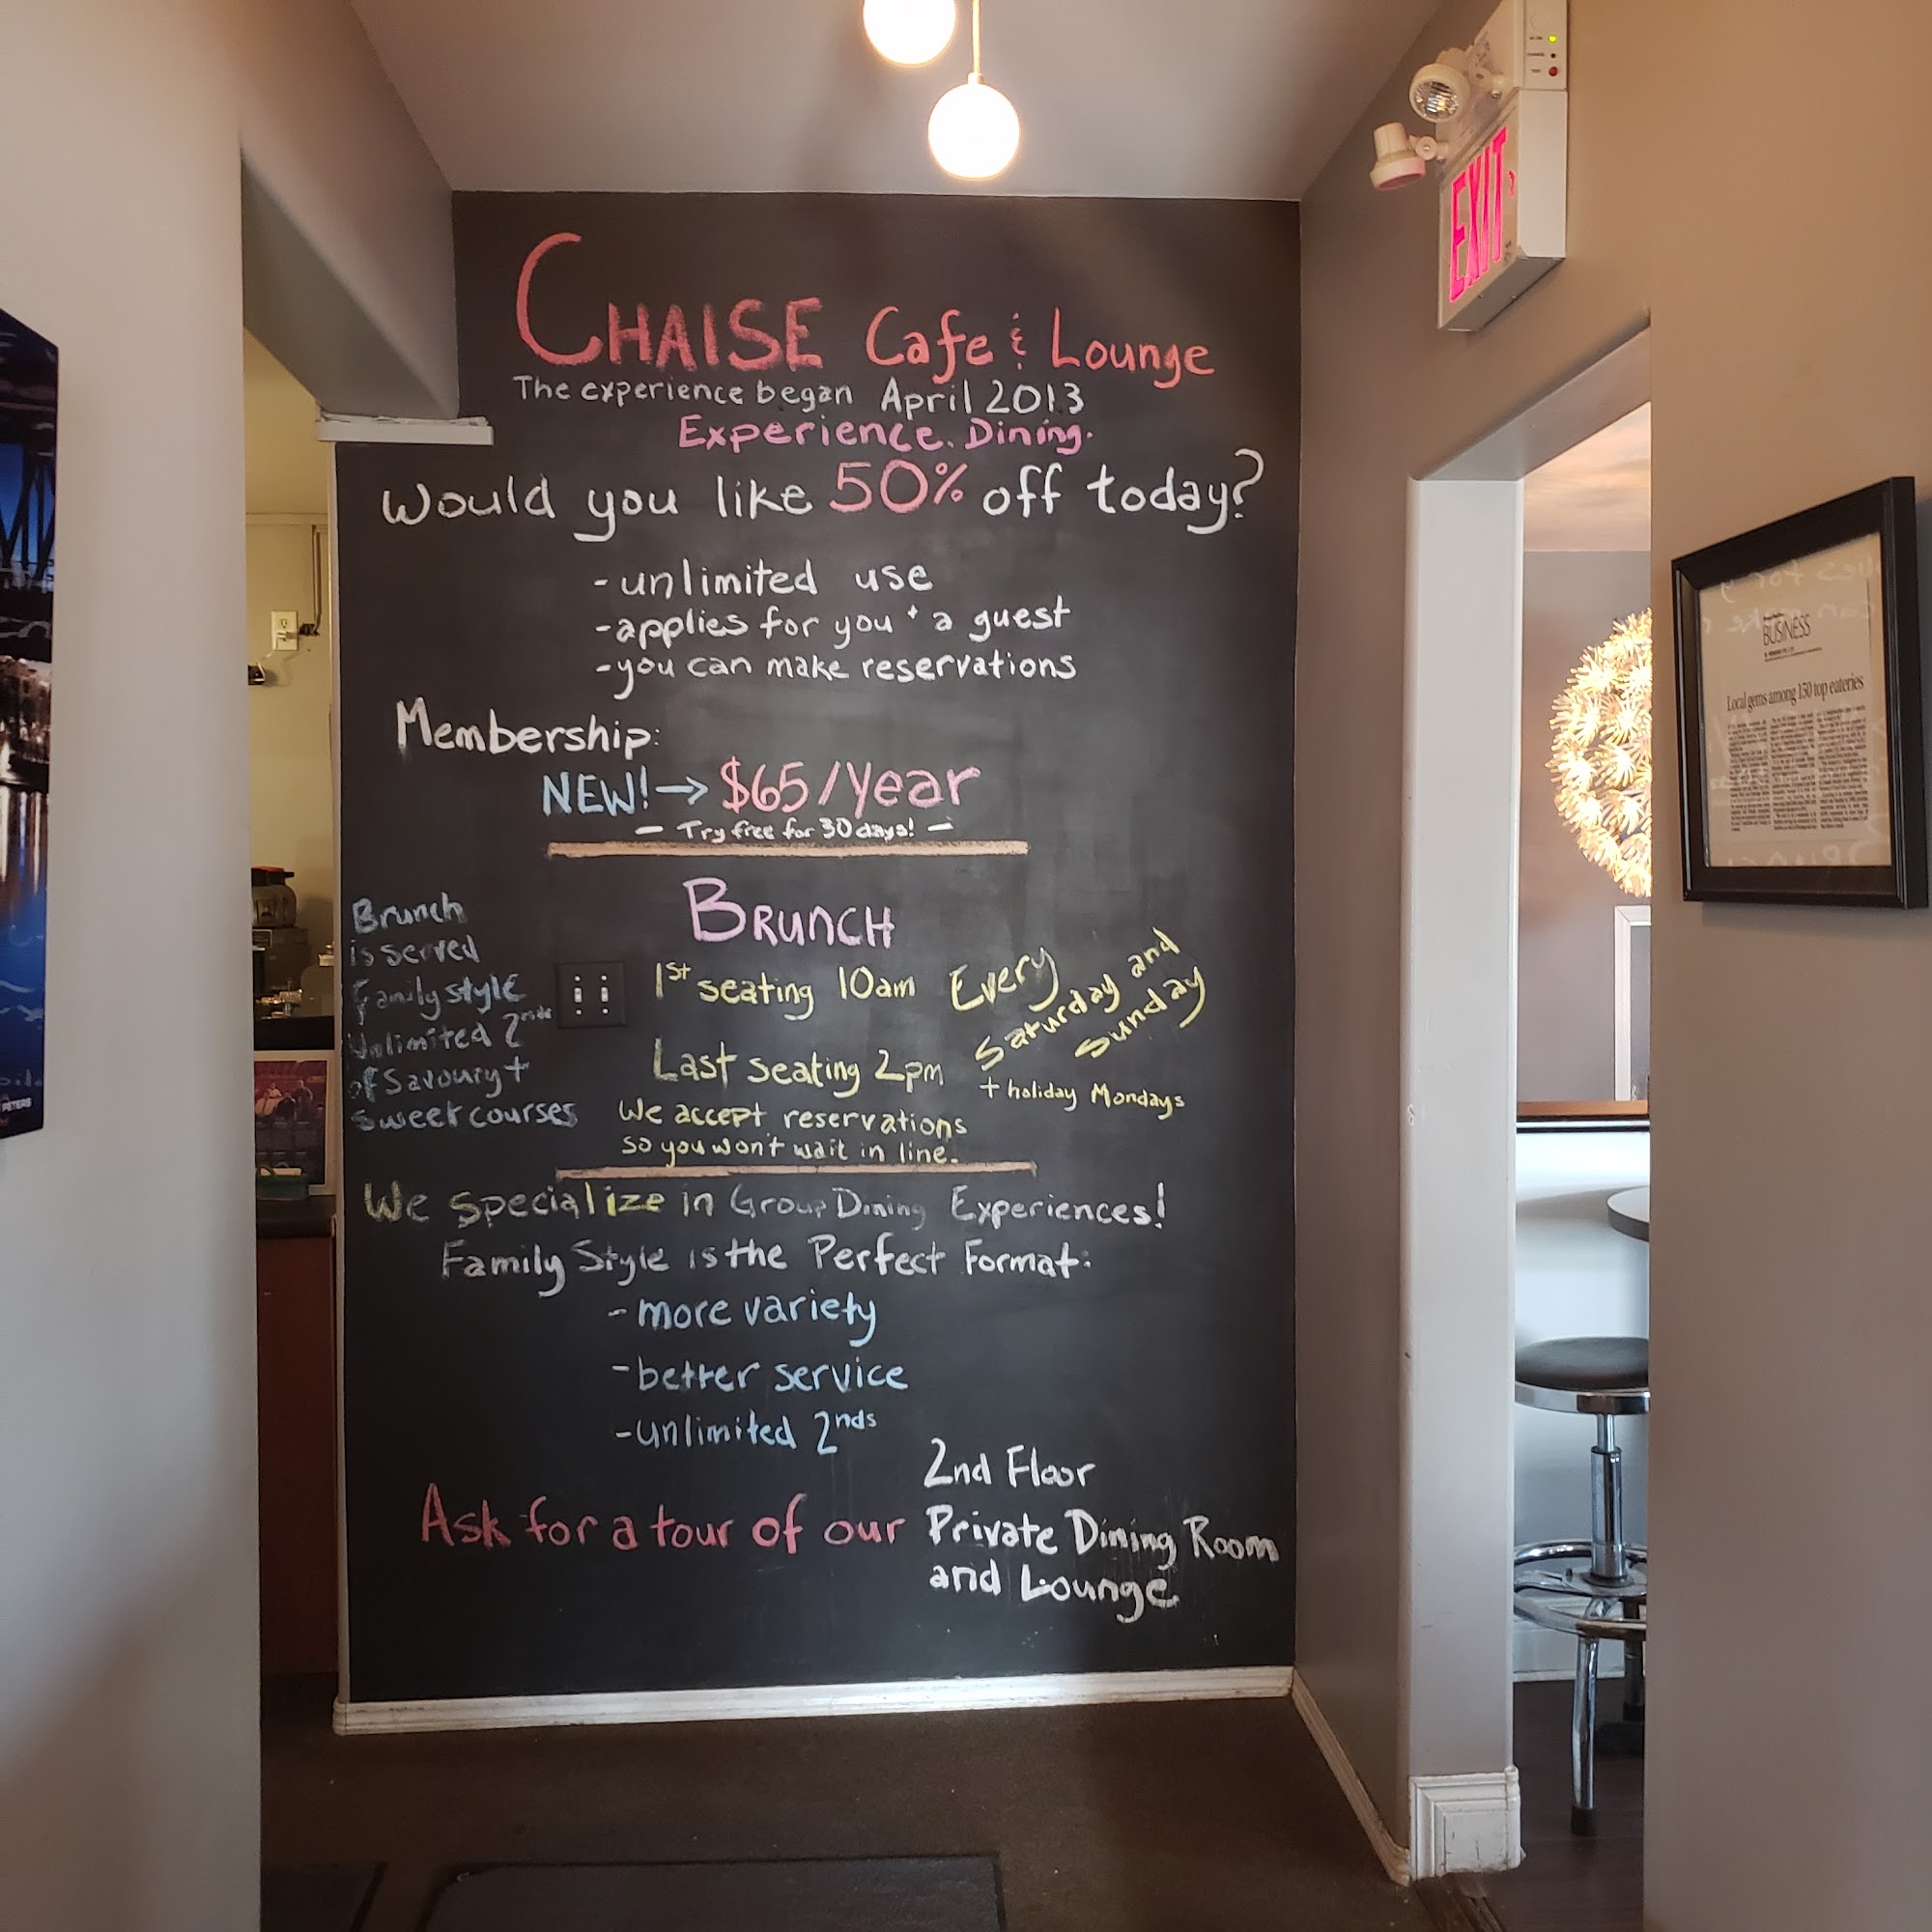 CHAISE Cafe & Lounge
The experience began April 2013
Experience. Dining.
Would you like 50% off today?
- unlimited use
- applies for you + a guest
- you can make reservations
Membership:
NEW! → $65/Year
- Try free for 30 days! -
BRUNCH
Brunch
is served
Family style
Unlimited 2nds
of Savoury +
sweet courses
1st seating 10am
Last seating 2pm
We accept reservations
so you won't wait in line.
Every
Saturday and
Sunday
+ holiday Mondays
We specialize in Group Dining Experiences!
Family Style is the Perfect Format:
- more variety
- better service
- unlimited 2nds
Ask for a tour of our
2nd Floor
Private Dining Room
and Lounge
EXIT
BUSINESS
Local gems among 150 top eateries
PETERS